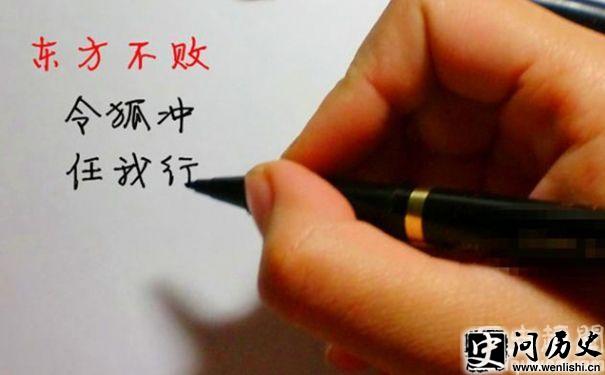 东方不败
令狐冲
任我行
史问历史
www.wenlishi.cn